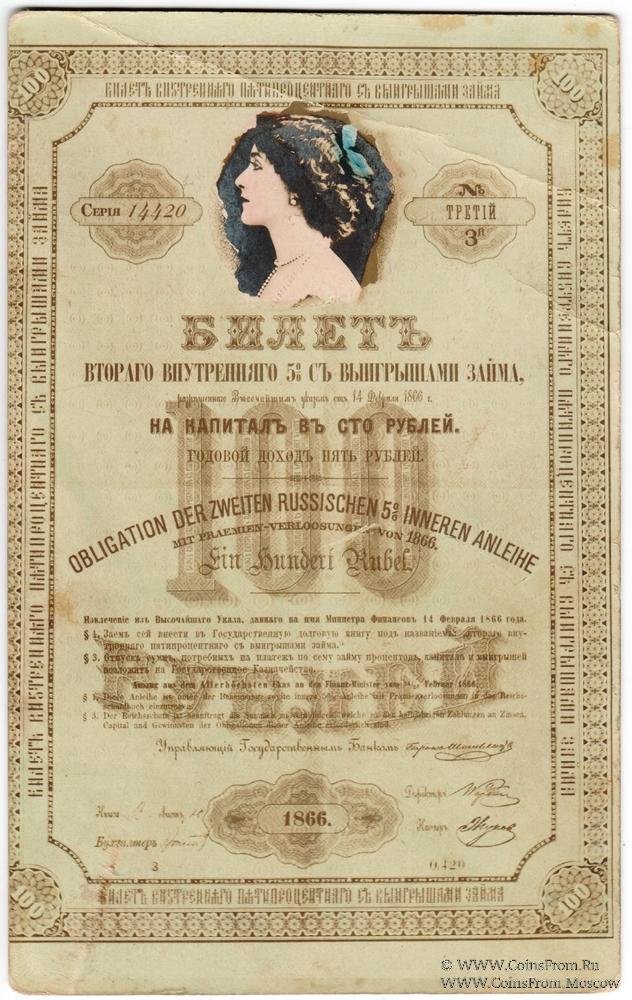 100
БИЛЕТЪ ВНУТРЕННЯГО ПЯТИПРОЦЕНТНАГО СЪ ВЫИГРЫШАМИ ЗАЙМА
100
БИЛЕТЪ ВНУТРЕННЯГО ПЯТИПРОЦЕНТНАГО СЪ ВЫИГРЫШАМИ ЗАЙМА
БИЛЕТЪ ВНУТРЕННЯГО ПЯТИПРОЦЕНТНАГО СЪ ВЫИГРЫШАМИ ЗАЙМА
СЕРІЯ 14420
№
ТРЕТІЙ
3й
БИЛЕТЪ
ВТОРАГО ВНУТРЕННЯГО 5% СЪ ВЫИГРЫШАМИ ЗАЙМА,
разрѣшеннаго Высочайшимъ указомъ отъ 14 Февраля 1866 г.
100
НА КАПИТАЛЪ ВЪ СТО РУБЛЕЙ.
ГОДОВОЙ ДОХОДЪ ПЯТЬ РУБЛЕЙ.
OBLIGATION DER ZWEITEN RUSSISCHEN 5% INNEREN ANLEIHE
MIT PRAEMIEN-VERLOOSUNGEN VON 1866.
Ein Hundert Rubel.
Извлеченіе изъ Высочайшаго Указа, даннаго на имя Министра Финансовъ 14 Февраля 1866 года.
§ 1. Заемъ сей внести въ Государственную долговую книгу подъ названіемъ: „втораго вну-
тренняго пятипроцентнаго съ выигрышами займа."
§ 3. Отпускъ суммъ, потребныхъ на платежъ по сему займу процентовъ, капитала и выигрышей
возложить на Государственное Казначейство.
Auszug aus dem Allerhöchsten Ukas an den Finanz-Minister vom Februar 1866.
§ 1. Diese Anleihe ist unter der Benennung zweite innere 5% Anleihe mit Praemienverloosungen in das Reichs-
schuldbuch einzutragen.
§ 3. Der Reichsschatz ist beauftragt die Summen zu verabfolgen, welche zu den halbjährigen Zahlungen an Zinsen,
Capital und Gewinnsten der Obligationen dieser Anleihe erforderlich sind.
Управляющій Государственнымъ Банкомъ
Директоръ
1866.
Книга листъ
Кассиръ
Бухгалтеръ
3
0,420
100
БИЛЕТЪ ВНУТРЕННЯГО ПЯТИПРОЦЕНТНАГО СЪ ВЫИГРЫШАМИ ЗАЙМА
100
© WWW.CoinsFrom.Ru
WWW.CoinsFrom.Moscow